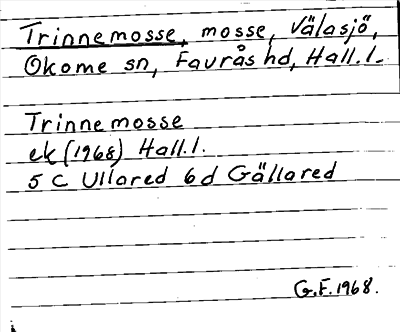 Trinnemosse, mosse, Välasjö,
Okome sn, Faurås hd, Hall. l.
Trinnemosse
ek (1968) Hall. l.
5 C Ullared 6 d Gällared
G.F. 1968.